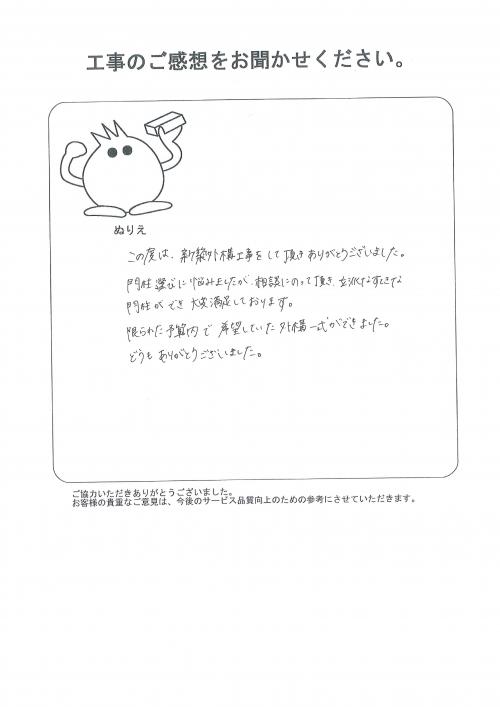 工事のご感想をお聞かせください。
ぬりえ
この度は、新築外構工事をして頂きありがとうございました。
門柱選びに悩みましたが、相談にのって頂き、立派なすてきな
門柱ができ大変満足しております。
限られた予算内で希望していた外構一式ができました。
どうもありがとうございました。
ご協力いただきありがとうございました。
お客様の貴重なご意見は、今後のサービス品質向上のための参考にさせていただきます。